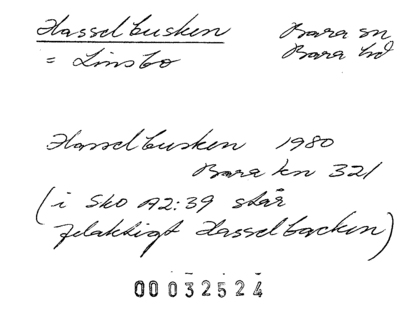 Hasselbusken Bara sn
= Linsbo Bara hd
Hasselbusken 1980
Bara kn 321
(i Sko A2:39 står
felaktigt Hasselbacken)
00032524